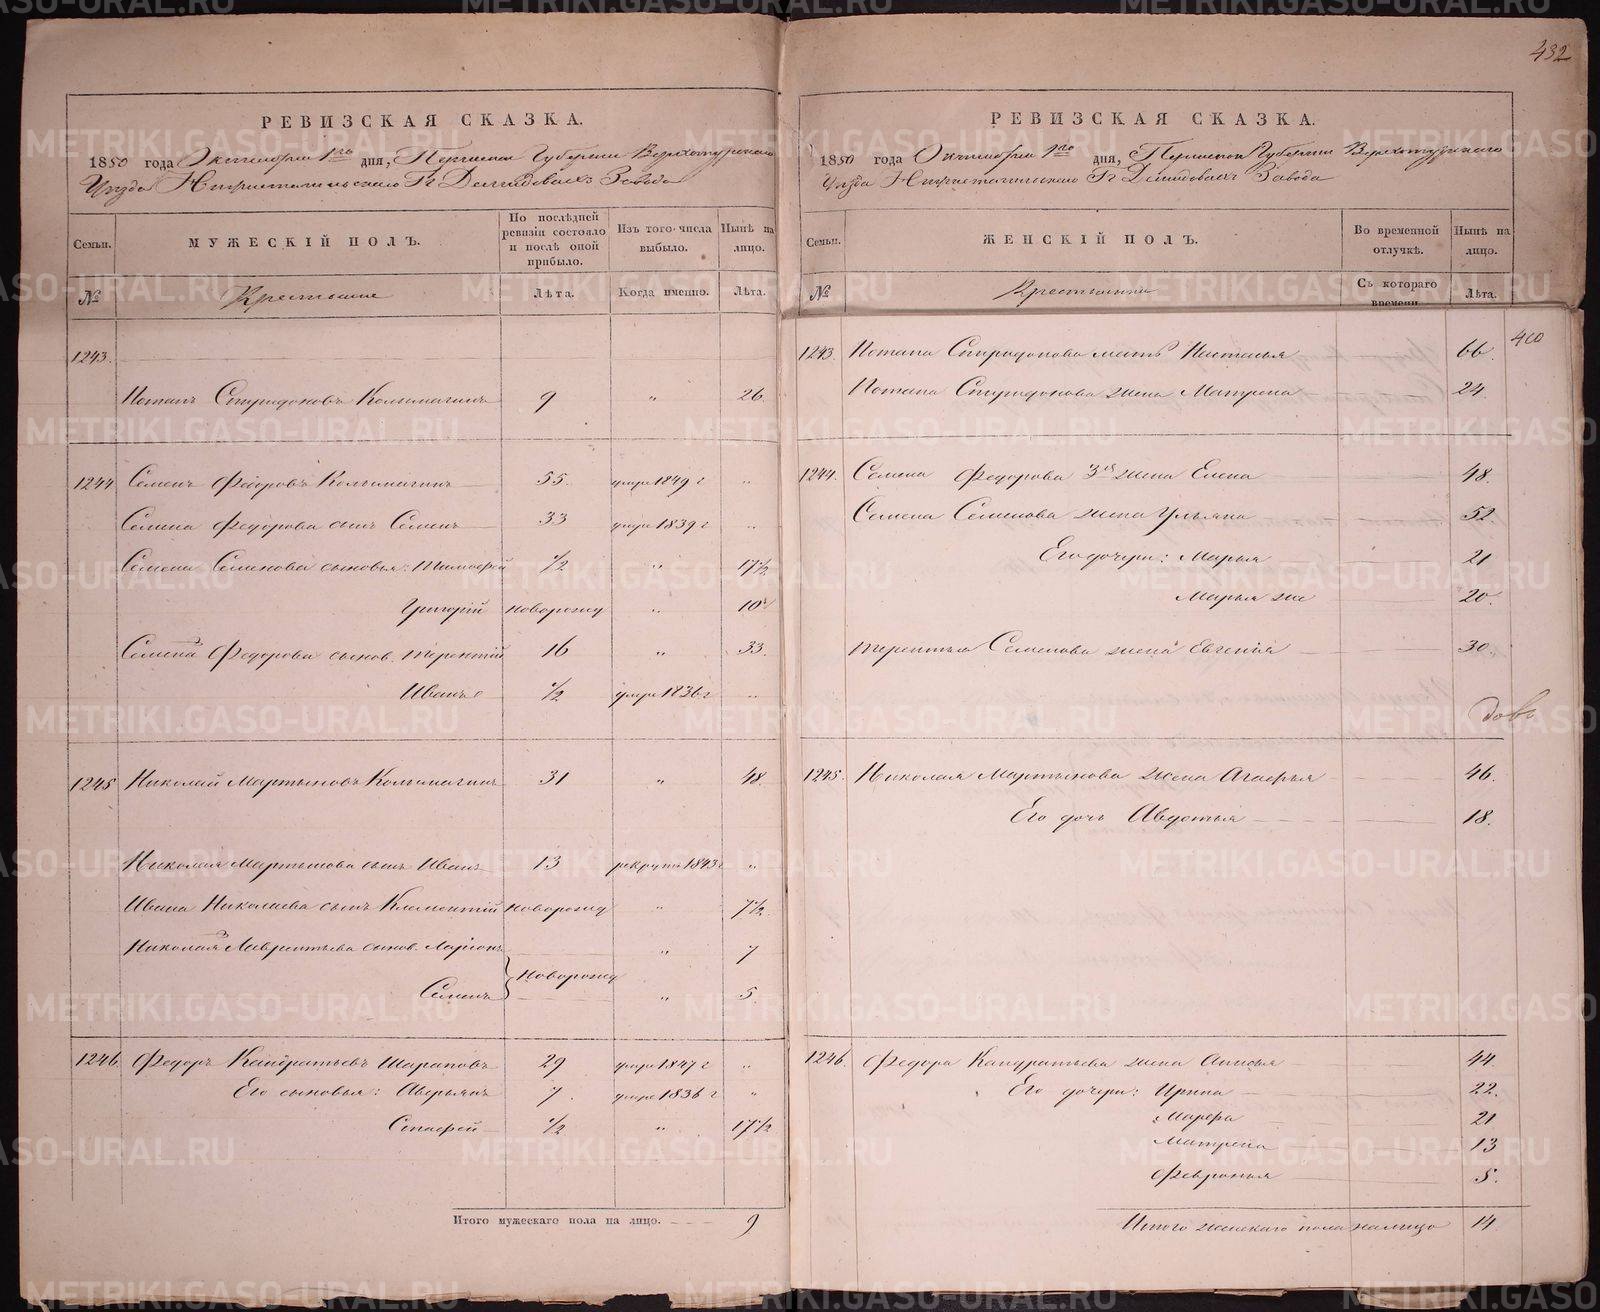 432
РЕВИЗСКАЯ СКАЗКА.
1850 года Октября 1го дня, Пермской Губернии Верхотурского
Уезда Нижнетагильского Гг Демидовых Завода
Семьи. МУЖЕСКІЙ ПОЛЪ. По послѣдней ревизіи состояло и послѣ оной прибыло. Изъ того числа выбыло. Нынѣ на лицо.
№ Крестьяне Лѣта. Когда именно. Лѣта.
1243.
Потапъ Спиридоновъ Колымагинъ 9 " 26
1244 Семенъ Федоровъ Колымагинъ 55. умре 1849 г "
Семена Федорова сынъ Семенъ 33 умре 1839 г "
Семена Семенова сыновья: Тимофей 1/2 " 17 1/2
Григорій новорожд " 10
Семена Федорова сынов. Терентій 16 " 33.
Иванъ 1/2 умре 1836 г "
1245 Николай Мартыновъ Колымагинъ 31 " 48.
Николая Мартынова сынъ Иванъ 13 рекрутъ 1843 г "
Ивана Николаева сынъ Климентій новорожд " 7 1/2
Николая Лаврентьева сынов. Ларіонъ " 7
новорожд
Семенъ " 5.
1246 Федоръ Кандратьевъ Шараповъ 29 умре 1847 г "
Его сыновья: Аверьянъ 7. умре 1836 г "
Спасфей 1/2 " 17 1/2
Итого мужескаго пола на лицо. 9
РЕВИЗСКАЯ СКАЗКА.
1850 года Октября 1го дня, Пермской Губернии Верхотурского
Уезда Нижнетагильского Гг Демидовых Завода
Семьи. ЖЕНСКІЙ ПОЛЪ. Во временной отлучкѣ. Нынѣ на лицо.
№ Крестьянки Съ котораго времени. Лѣта.
460
1243. Потапа Спиридонова мать Настасья 66.
Потапа Спиридонова жена Матрена 24.
1244. Семена Федорова 3я жена Елена 48.
Семена Семенова жена Ульяна 52.
Его дочери: Марья 21
Марья же 20.
Терентья Семенова жена Евгенія 30.
1245. Николая Мартынова жена Агафья 46.
Его дочь Авдотья 18.
1246. Федора Кандратьева жена Анисья 44.
Его дочери: Ирина 22.
Марфа 21
Матрена 13
Февронья 5.
Итого женскаго пола налицо 14
METRIKI.GASO-URAL.RU